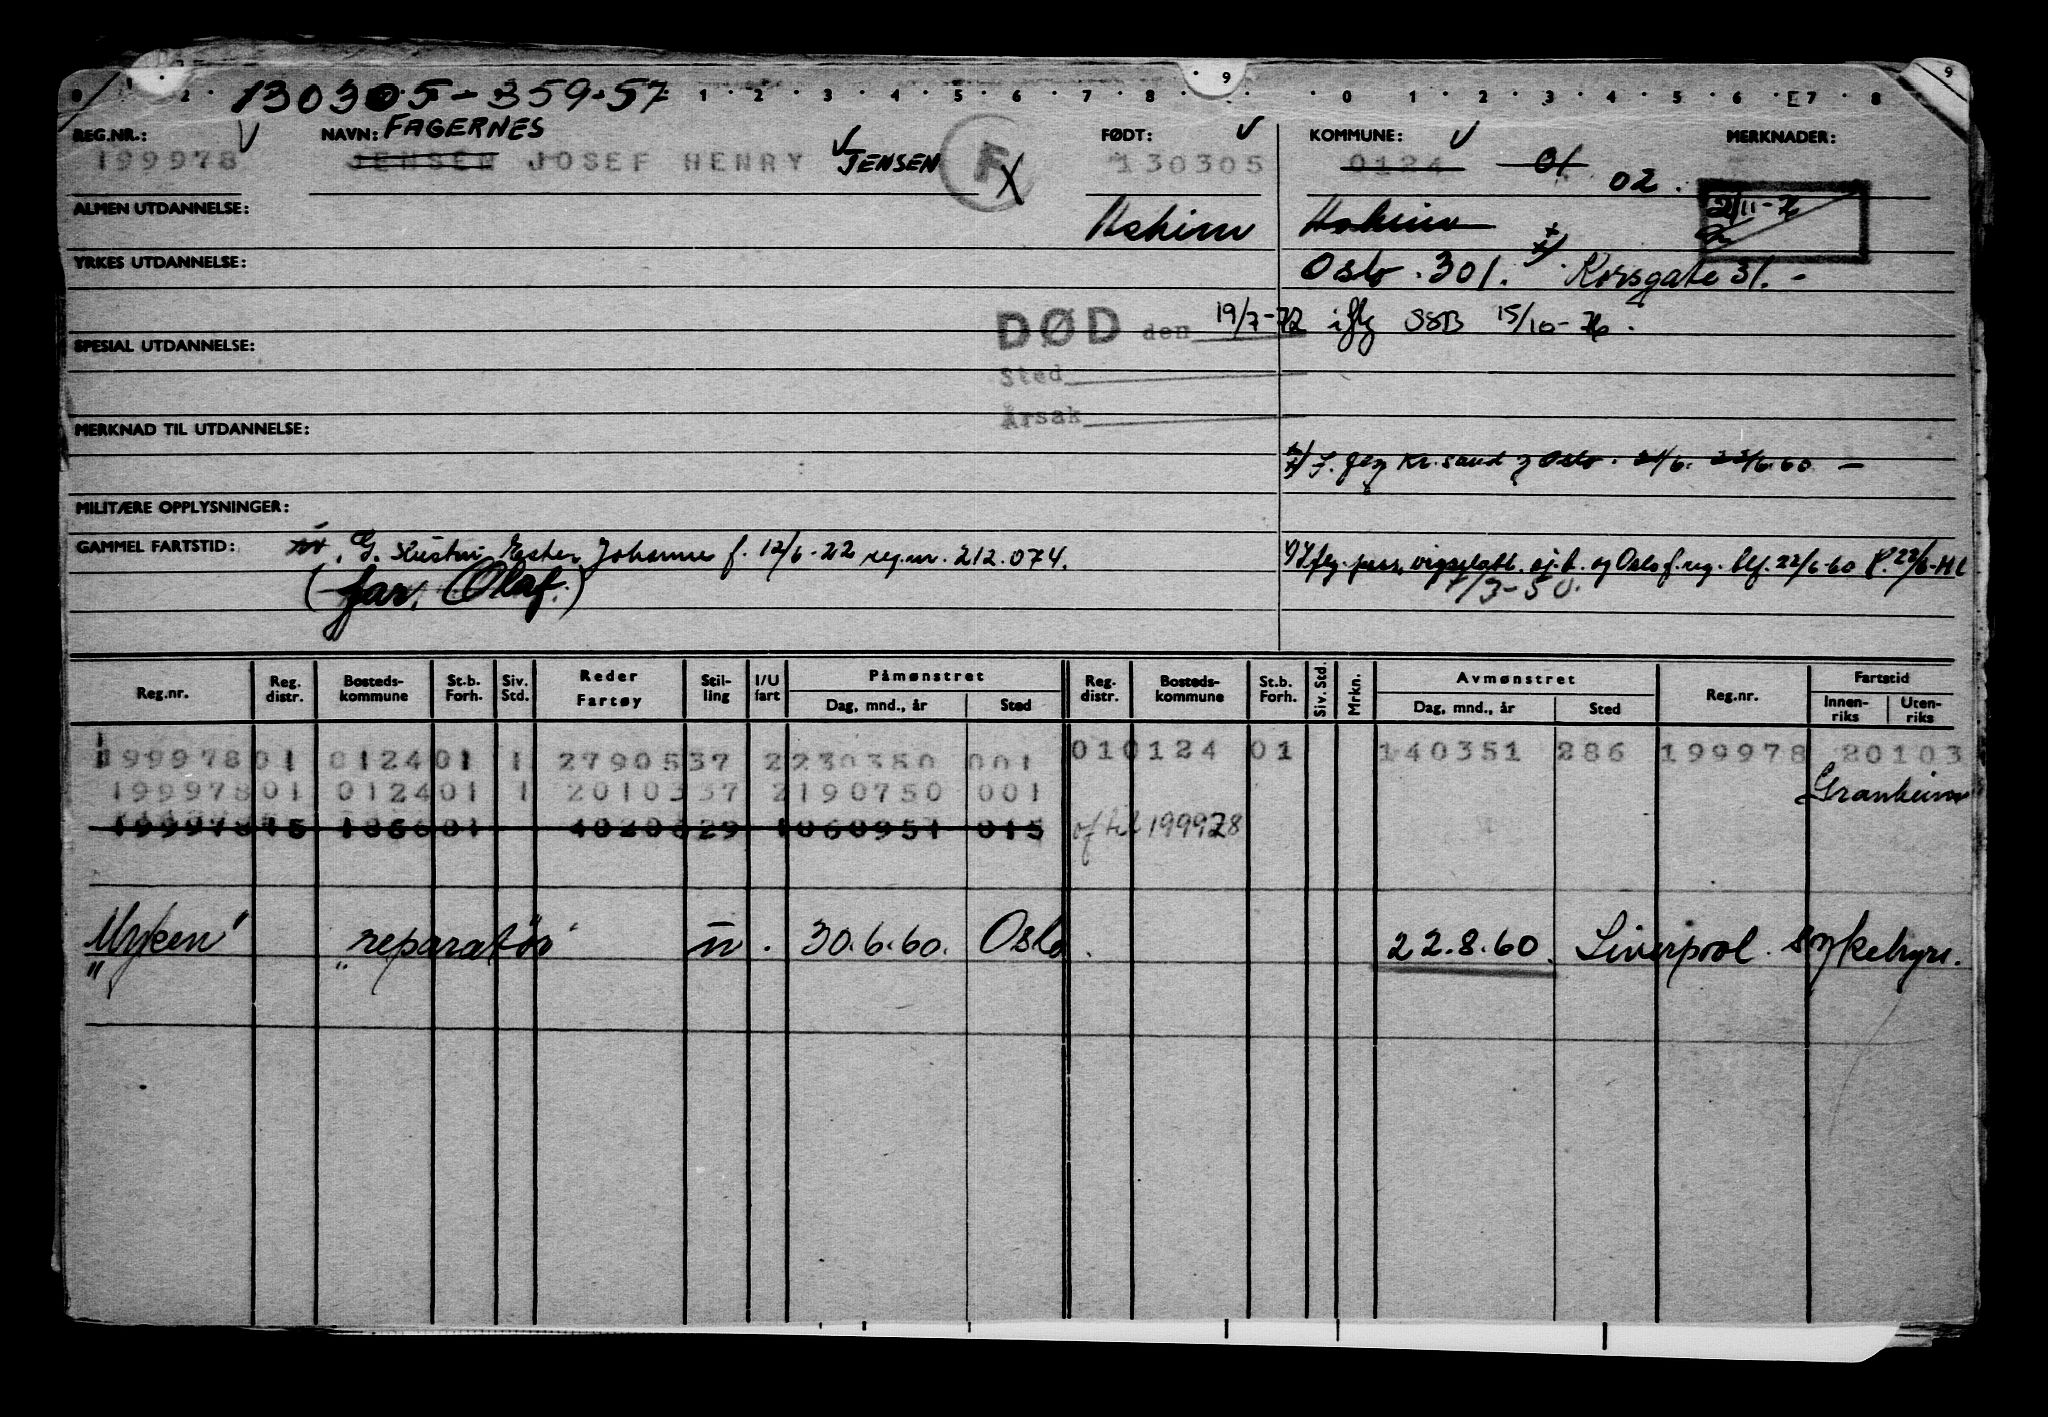 130305-359-57
1 2 3 4 5 6 7 8 9 0 1 2 3 4 5 6 7 8 9
REG.NR.: V NAVN: FAGERNES FØDT: V KOMMUNE: V MERKNADER:
199978 JENSEN JOSEF HENRY V JENSEN F X 130305 0124 01 02.
ALMEN UTDANNELSE: Askim Askim 2/11-76
YRKES UTDANNELSE: Oslo 301. Korsgate 31. -
DØD den 19/7-72 iflg SSB 15/10-76.
SPESIAL UTDANNELSE:
Sted
Årsak
MERKNAD TIL UTDANNELSE:
Kr.sand Oslo. 21/6. 23/6.60 -
MILITÆRE OPPLYSNINGER:
GAMMEL FARTSTID: G. Ester Johanne f. 12/6-22 reg.nr. 212.074.
og Oslo f. reg. 22/6-60
(far, Olaf.) 1/3-50.
Reg.nr. Reg. distr. Bosteds-kommune St.b. Forh. Siv. Std. Reder Fartøy Stil-ling I/U fart Påmønstret Dag, mnd., år Sted Reg. distr. Bosteds-kommune St.b. Forh. Siv. Std. Mrkn. Avmønstret Dag, mnd., år Sted Reg.nr. Fartstid Innen-riks Uten-riks
199978 01 0124 01 1 27905 37 2 230350 001 01 0124 01 140351 286 199978 20103
199978 01 0124 01 1 20103 37 2 190750 001 Granheim
199978 15 40208 29 1 060951 015 199978
"Myken" "reparatør" 30.6.60. Oslo. 22.8.60. Liverpool. sykehys.